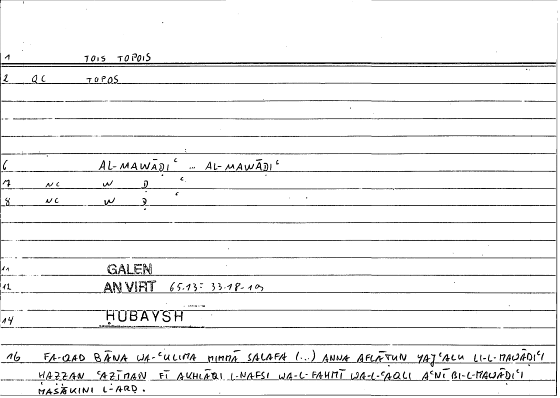 1 TOIS TOPOIS
2 QC TOPOS
6 AL-MAWĀḌIʿ ... AL-MAWĀḌIʿ
7 NC W Ḍ ʿ
8 NC W Ḍ ʿ
11 GALEN
12 AN VIRT 65.13: 33.18-19
14 HUBAYSH
16 FA-QAD BĀNA WA-ʿULIMA MIMMĀ SALAFA (...) ANNA AFLĀṬUN YAǦʿALU LI-L-MAWĀḌIʿI
ḤAẒẒAN ʿAẒĪMAN FĪ AKHLĀQI L-NAFSI WA-L-FAHMI WA-L-ʿAQLI AʿNĪ BI-L-MAWĀḌIʿI
MASĀKINI L-ARḌ.